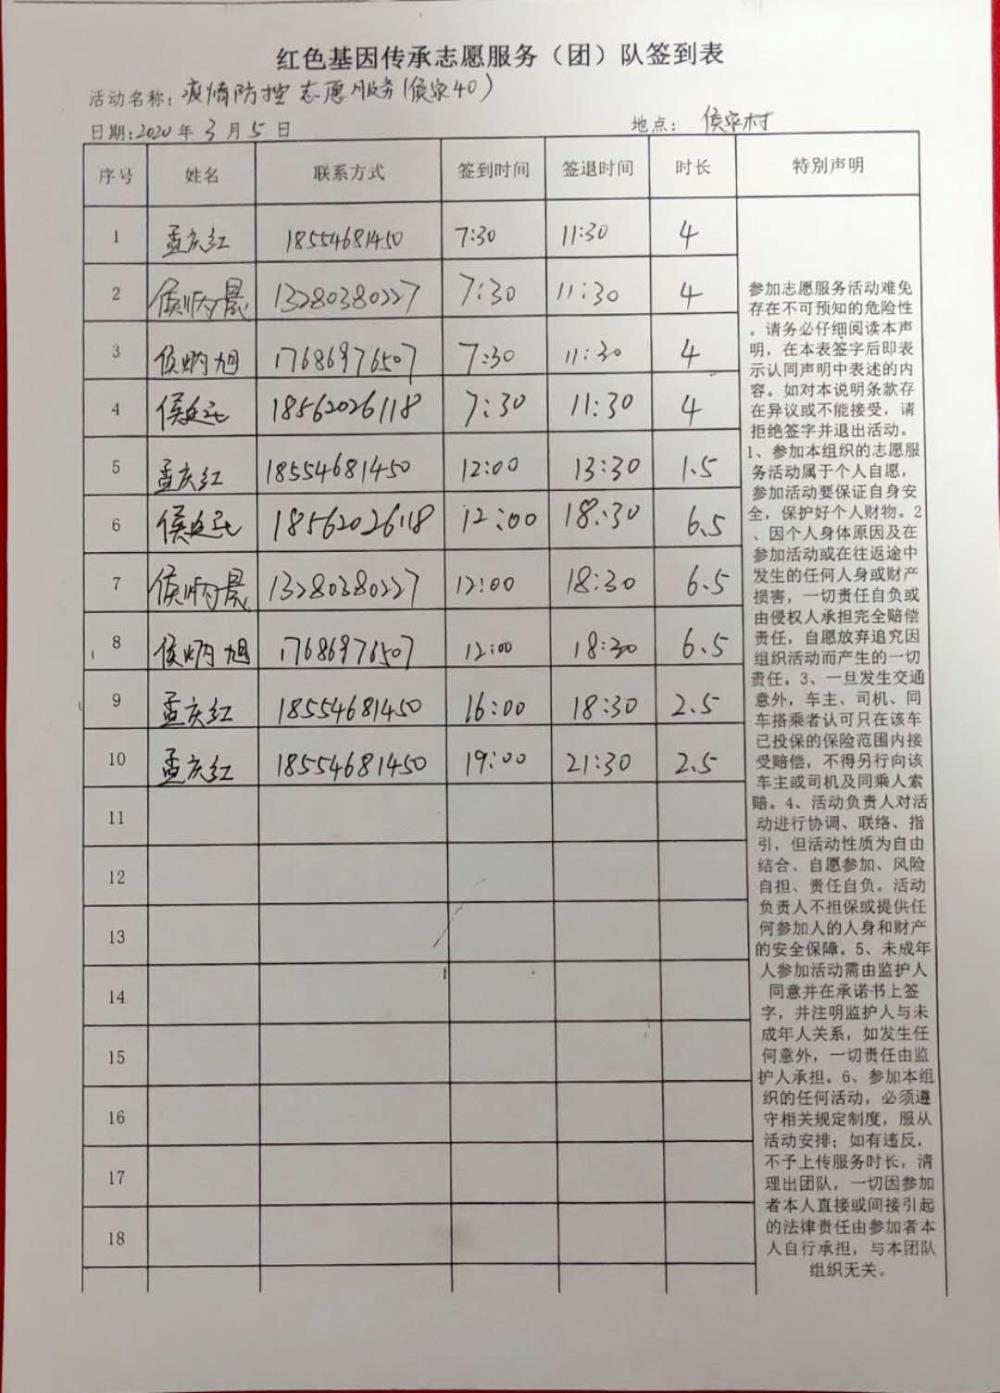 红色基因传承志愿服务（团）队签到表
活动名称：疫情防控志愿服务（侯家40）
日期:2020年3月5日 地点：侯家村
序号 姓名 联系方式 签到时间 签退时间 时长 特别声明
1 孟庆红 18554681450 7:30 11:30 4
2 侯炳晨 13280380227 7:30 11:30 4
3 侯炳旭 17686976507 7:30 11:30 4
4 侯延 18562026118 7:30 11:30 4
5 孟庆红 18554681450 12:00 13:30 1.5
6 侯延 18562026118 12:00 18:30 6.5
7 侯炳晨 13280380227 12:00 18:30 6.5
8 侯炳旭 17686976507 12:00 18:30 6.5
9 孟庆红 18554681450 16:00 18:30 2.5
10 孟庆红 18554681450 19:00 21:30 2.5
11
12
13
14
15
16
17
18
参加志愿服务活动难免
存在不可预知的危险性
，请务必仔细阅读本声
明，在本表签字后即表
示认同声明中表述的内
容。如对本说明条款存
在异议或不能接受，请
拒绝签字并退出活动。
1、参加本组织的志愿服
务活动属于个人自愿，
参加活动要保证自身安
全，保护好个人财物。2
、因个人身体原因及在
参加活动或在往返途中
发生的任何人身或财产
损害，一切责任自负或
由侵权人承担完全赔偿
责任，自愿放弃追究因
组织活动而产生的一切
责任。3、一旦发生交通
意外，车主、司机、同
车搭乘者认可只在该车
已投保的保险范围内接
受赔偿，不得另行向该
车主或司机及同乘人索
赔。4、活动负责人对活
动进行协调、联络、指
引，但活动性质为自由
结合、自愿参加、风险
自担、责任自负。活动
负责人不担保或提供任
何参加人的人身和财产
的安全保障。5、未成年
人参加活动需由监护人
同意并在承诺书上签
字，并注明监护人与未
成年人关系，如发生任
何意外，一切责任由监
护人承担。6、参加本组
织的任何活动，必须遵
守相关规定制度，服从
活动安排；如有违反，
不予上传服务时长，清
理出团队，一切因参加
者本人直接或间接引起
的法律责任由参加者本
人自行承担，与本团队
组织无关。